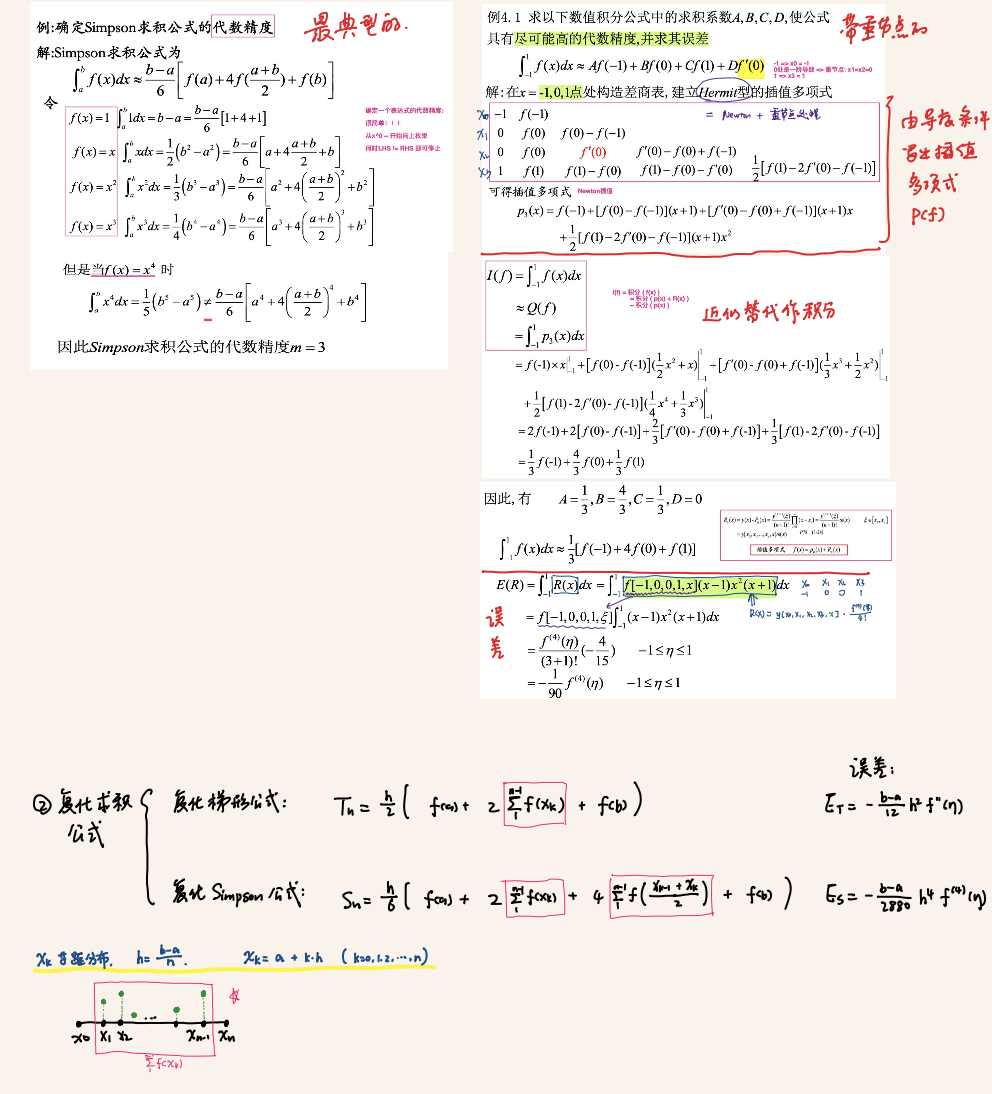 例:确定Simpson求积公式的代数精度
最典型的.
解:Simpson求积公式为
∫_a^b f(x)dx ≈ (b−a)/6 [f(a)+4f((a+b)/2)+f(b)]
令
f(x)=1 ∫_a^b 1dx=b−a=(b−a)/6[1+4+1]
f(x)=x ∫_a^b xdx=1/2(b²−a²)=(b−a)/6[a+4(a+b)/2+b]
f(x)=x² ∫_a^b x²dx=1/3(b³−a³)=(b−a)/6[a²+4((a+b)/2)²+b²]
f(x)=x³ ∫_a^b x³dx=1/4(b⁴−a⁴)=(b−a)/6[a³+4((a+b)/2)³+b³]
确定一个表达式的代数精度:
很简单！！！
从x^0 ~ 开始向上枚举
何时LHS != RHS 即可停止
但是当f(x)=x⁴ 时
∫_a^b x⁴dx=1/5(b⁵−a⁵)≠(b−a)/6[a⁴+4((a+b)/2)⁴+b⁴]
因此Simpson求积公式的代数精度m=3
例4.1 求以下数值积分公式中的求积系数A,B,C,D,使公式
具有尽可能高的代数精度,并求其误差
带重节点的
∫_{-1}^1 f(x)dx ≈ Af(−1)+Bf(0)+Cf(1)+Df′(0)
-1 => x0 = -1
0处是一阶导数 => 重节点: x1=x2=0
1 => x3 = 1
解:在x=-1,0,1点处构造差商表,建立Hermit型的插值多项式
= Newton + 重节点处理
x₀ −1 f(−1)
x₁ 0 f(0) f(0)−f(−1)
x₂ 0 f(0) f′(0) f′(0)−f(0)+f(−1)
x₃ 1 f(1) f(1)−f(0) f(1)−f(0)−f′(0) 1/2[f(1)−2f′(0)−f(−1)]
由导数条件
写出插值
多项式
P(f)
可得插值多项式 Newton插值
p₃(x)=f(−1)+[f(0)−f(−1)](x+1)+[f′(0)−f(0)+f(−1)](x+1)x
+1/2[f(1)−2f′(0)−f(−1)](x+1)x²
I(f)=∫_{-1}^1 f(x)dx
≈Q(f)
=∫_{-1}^1 p₃(x)dx
I(f) = 积分 ( f(x) )
= 积分 ( p(x) + R(x) )
~ 积分 ( p(x) )
近似替代作积分
=f(-1)×x|_{-1}^1+[f(0)-f(-1)](1/2x²+x)|_{-1}^1+[f′(0)-f(0)+f(-1)](1/3x³+1/2x²)|_{-1}^1
+1/2[f(1)-2f′(0)-f(-1)](1/4x⁴+1/3x³)|_{-1}^1
=2f(-1)+2[f(0)-f(-1)]+2/3[f′(0)-f(0)+f(-1)]+1/3[f(1)-2f′(0)-f(-1)]
=1/3f(-1)+4/3f(0)+1/3f(1)
因此,有 A=1/3,B=4/3,C=1/3,D=0
∫_{-1}^1 f(x)dx≈1/3[f(−1)+4f(0)+f(1)]
插值多项式 f(x)=pₙ(x)+Rₙ(x)
误差
E(R)=∫_{-1}^1 R(x)dx=∫_{-1}^1 f[−1,0,0,1,x](x−1)x²(x+1)dx
x₀ x₁ x₂ x₃
-1 0 0 1
=f[−1,0,0,1,ξ]∫_{-1}^1 (x−1)x²(x+1)dx
=f⁽⁴⁾(η)/(3+1)!(−4/15) −1≤η≤1
=−1/90 f⁽⁴⁾(η) −1≤η≤1
误差:
② 复化求积公式
复化梯形公式: Tn= h/2( f(a)+ 2 Σ_1^{n-1} f(xk) + f(b) ) E_T = − (b−a)/12 h² f″(η)
复化Simpson公式: Sn= h/6( f(a)+ 2 Σ_1^{n-1} f(xk) + 4 Σ_1^{n-1} f((x_{k-1}+x_k)/2) + f(b) ) E_S = − (b−a)/2880 h⁴ f⁽⁴⁾(η)
xk 等距分布. h= (b−a)/n. xk= a + k·h (k=0,1,2,…,n)
x0 x1 x2 … xn-1 xn
Σ_1^{n-1} f(xk)